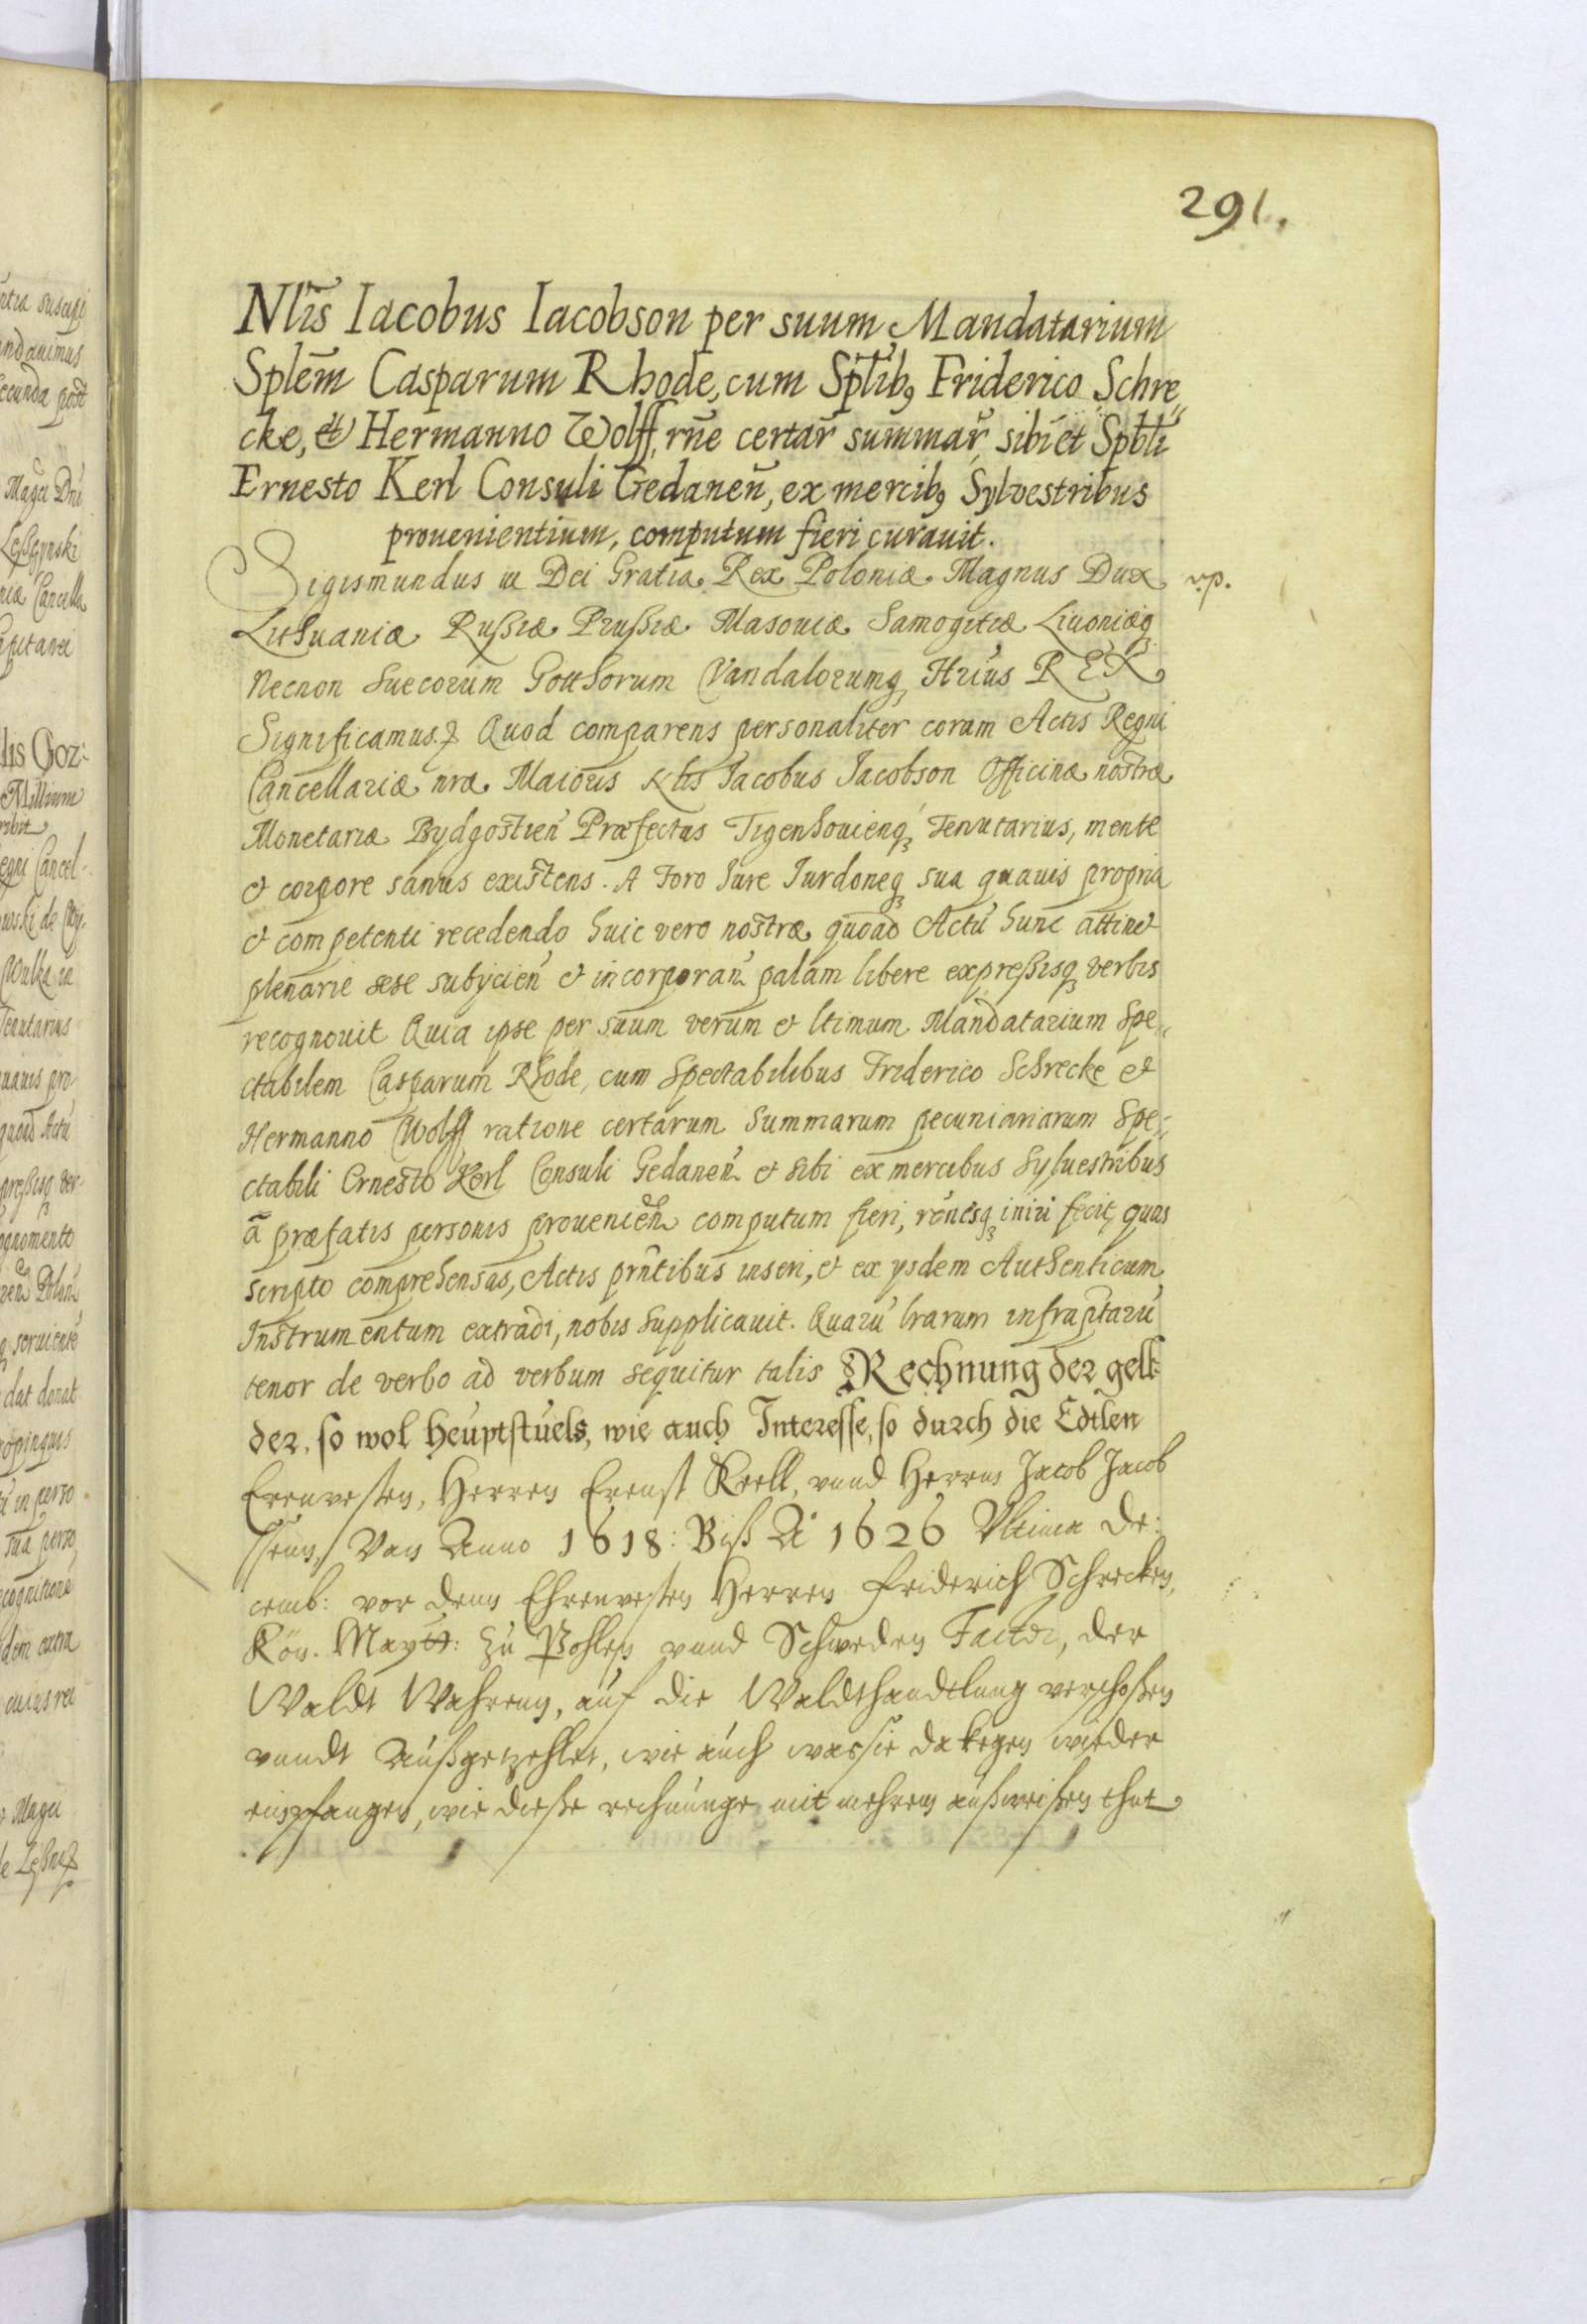 291.
Nlis̃ Iacobus Iacobson per suum Mandatarium
Splem̃ Casparum Rhode, cum Sptlib9 Friderico Schre„
cke, et Hermanno Wolff, rñe certar̃ summar̃, sibi et Spbli
Ernesto Kerl Consuli Gedaneñ, ex mercib9 Sylvestribus
prouenientium, computum fieri curauit.
Sigismundus III Dei Gratia Rex Poloniæ Magnus Dux
v.p.
Lithuaniæ Rußiæ Prußiæ Masouiæ Samogitiæ Liuoniæq3
Necnon Suecorum Gotthorum Vandalorumq3 Hrius REX
Significamus. Quod comparens personaliter coram Actis Regni
Cancellariæ nræ Maioris Nlis Jacobus Jacobson Officinæ nostræ
Monetariæ Bydgostieñ Præfectus Tigenhouienq3 Tenutarius, mente
et corpore sanus existens. A Foro Iure Iurdoneq3 sua quauis propria
et competenti recedendo huic vero nostræ quoad Actu hunc attinet
plenarie sese subijcieñ et incorporañ palam libere expreßisq3 verbis
recognouit Quia ipse per suum verum et ltimum Mandatarium Spe„
ctabilem Casparum Rhode, cum Spectabilibus Friderico Schrecke et
Hermanno Wolff ratione certarum Summarum pecuniariarum Spe„
ctabili Ernesto Kerl Consuli Gedaneñ et sibi ex mercibus Syluestribus
a præfatis personis prouenieñ computum fieri, rõnesq3 iniri fecit, quas
scripto comprehensas, Actis prñtibus inseri, et ex ysdem Authenticum
Instrumentum extradi, nobis Supplicauit. Quarũ lrarum infrasptarũ
tenor de verbo ad verbum sequitur talis Rechnung der gell-
der, so wol heuptstuels, wie auch Interesse, so durch die Edtlen
Erenvesten, Herren Ernst Kerll, vnnd Herren Jacob Jacob
ssenn, Van Anno 1618: Biß Aº 1626 Vltima De:
cemb: vor dem Ehrenvesten Herren Friderich Schrecken,
Kön. Maytt: zu Pohlen vnnd Schweden Factor, der
Waldt Wahren, auf die Waldthandtlung verschoßen
vnndt Außgezehlet, wie auch was sie dakegen wieder
empfangen, wie dieße rechnunge mit mehren außweißen thut